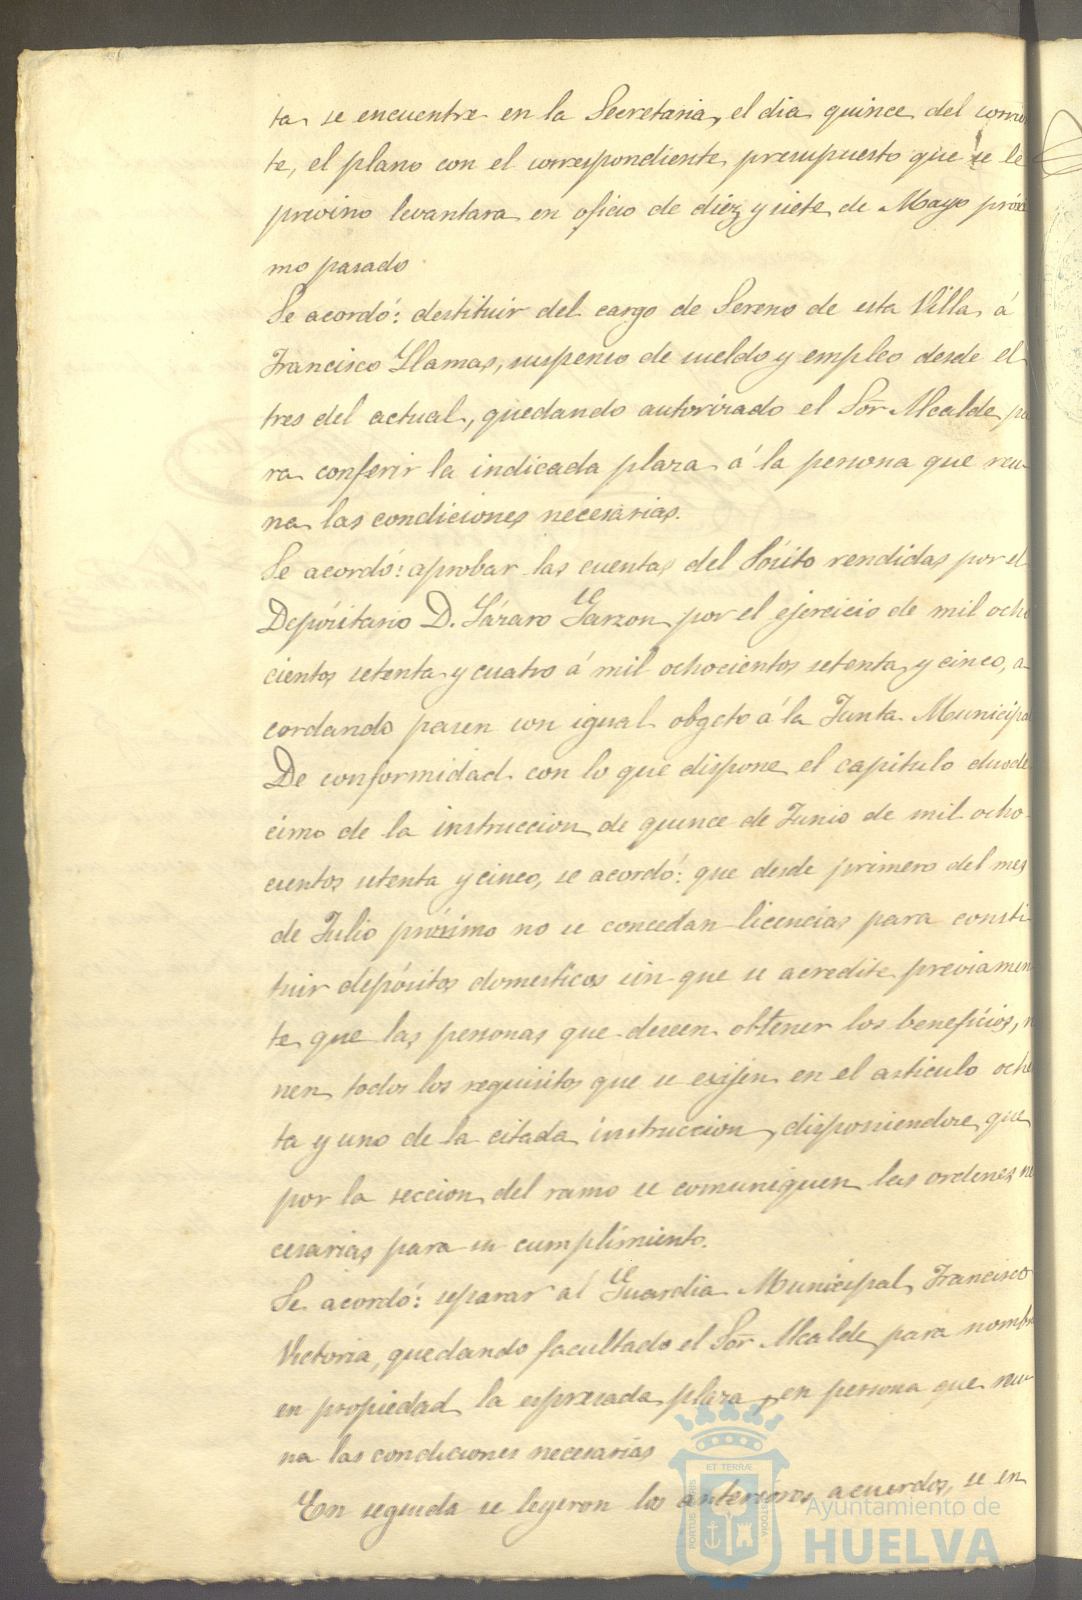 ta se encuentre en la Secretaria, el dia quince del corrien
te, el plano con el correspondiente presupuesto que se le
previno levantara en oficio de diez y siete de Mayo próxi
mo pasado.
Se acordó: destituir del cargo de Sereno de esta Villa á
Francisco Llamas, suspenso de sueldo y empleo desde el
tres del actual, quedando autorizado el Sor Alcalde pa
ra conferir la indicada plaza á la persona que reu-
na las condiciones necesarias.
Se acordó: aprobar las cuentas del Pósito rendidas por el
Depósitario D. Lázaro Garzon por el ejercicio de mil ocho
cientos setenta y cuatro á mil ochocientos setenta y cinco, a-
cordando pasen con igual obgeto á la Junta Municipal
De conformidad con lo que dispone el capitulo duode
cimo de la instruccion de quince de Junio de mil ocho-
cientos setenta y cinco, se acordó: que desde primero del mes
de Julio próximo no se concedan licencias para consti-
tuir depósitos domesticos sin que se acredite previamen
te que las personas que deseen obtener los beneficios,
nen todos los requisitos que se exijen en el articulo oche
ta y uno de la citada instruccion, disponiendose que
por la seccion del ramo se comuniquen las ordenes ne
cesarias para su cumplimiento.
Se acordó: separar al Guardia Municipal Francisco
Victoria, quedando facultado el Sor Alcalde para nombr
en propiedad la espresada plaza, en persona que reu-
na las condiciones necesarias
En seguida se leyeron los anteriores acuerdos, se en
Ayuntamiento de
HUELVA
PORTUS MARIS
ET TERRÆ
CUSTODIA